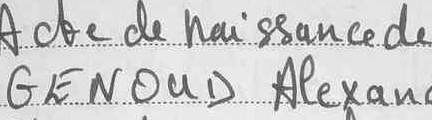 Acte de naissance de
GENOUD Alexan